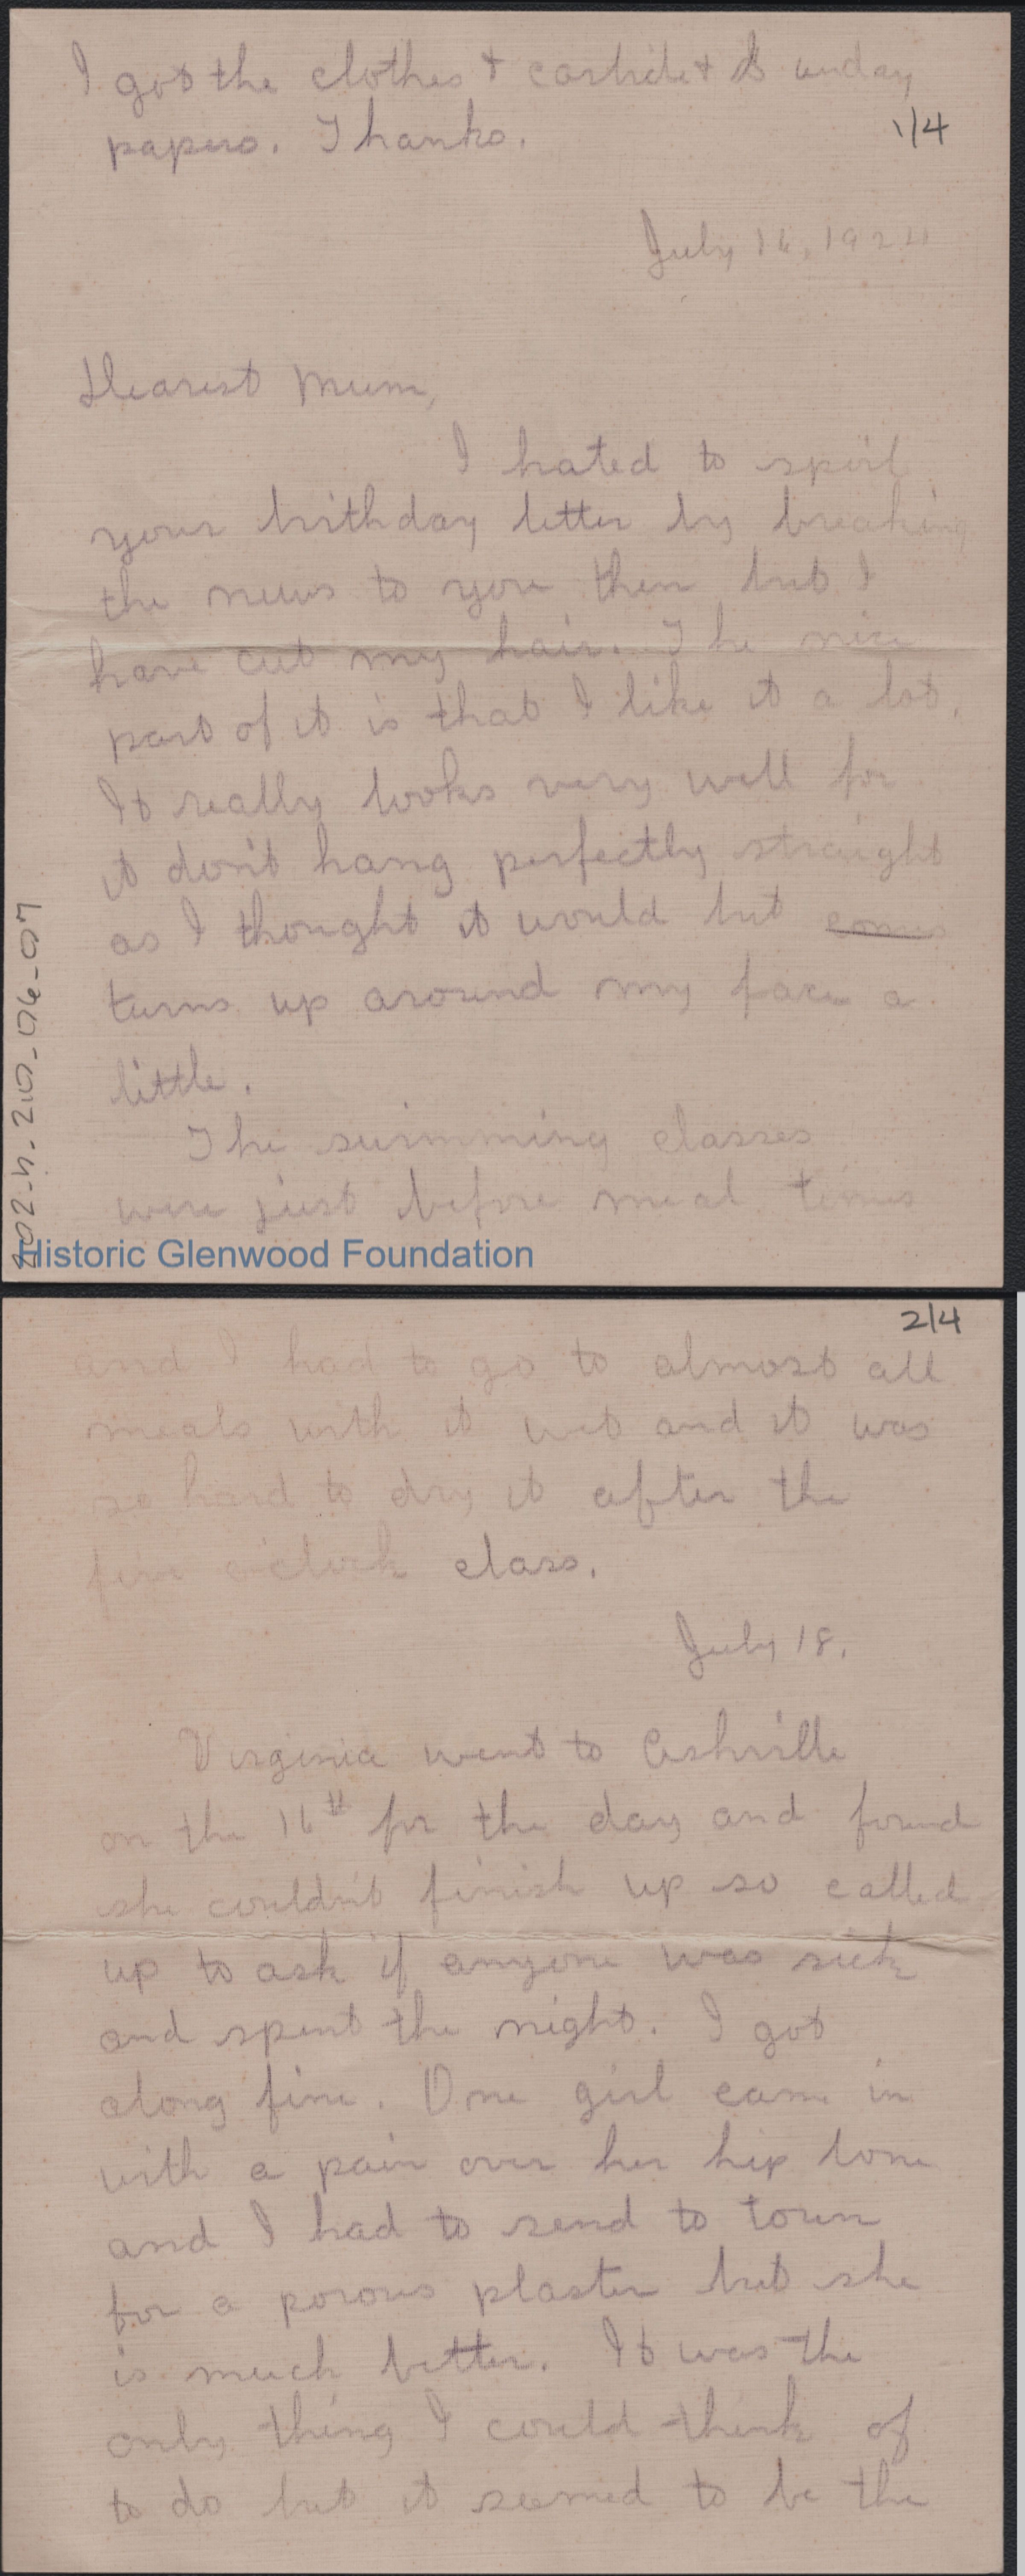 I got the clothes + carbide + Sunday
papers. Thanks.
1/4
July 16, 1924
Dearest Mum,
I hated to spoil
your birthday letter by breaking
the news to you then but I
have cut my hair. The nice
part of it is that I like it a lot.
It really looks very well for
it don't hang perfectly straight
as I thought it would but
turns up around my face a
little.
The swimming classes
were just before meal times
202-h-210-06-07
Historic Glenwood Foundation
2/4
and I had to go to almost all
meals with it wet and it was
so hard to dry it after the
five o'clock class.
July 18.
Virginia went to Ashville
on the 16th for the day and found
she couldn't finish up so called
up to ask if anyone was sick
and spent the night. I got
along fine. One girl came in
with a pain over her hip bone
and I had to send to town
for a porous plaster but she
is much better. It was the
only thing I could think of
to do but it seemed to be the